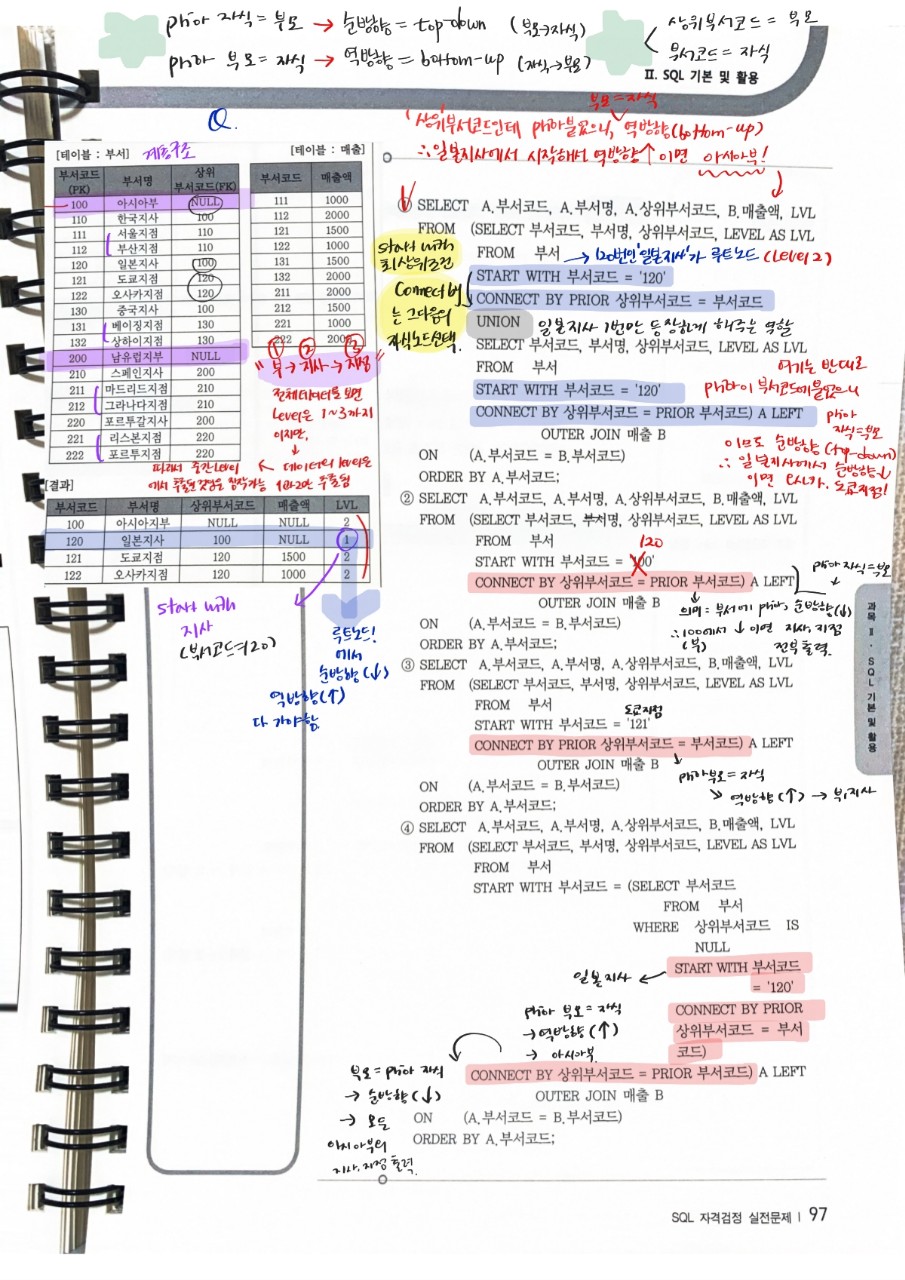 prior 자식 = 부모 → 순방향 = top-down (부모→자식)
prior 부모 = 자식 → 역방향 = bottom-up (자식→부모)
상위부서코드 = 부모
부서코드 = 자식
II. SQL 기본 및 활용
Q.
부모=자식
상위부서코드인데 prior붙었으니, 역방향(bottom-up)
∴ 일본지사에서 시작해서 역방향↑ 이면 아시아부!
[테이블 : 부서] 계층구조
부서코드(PK) 부서명 상위부서코드(FK)
100 아시아부 NULL
110 한국지사 100
111 서울지점 110
112 부산지점 110
120 일본지사 100
121 도쿄지점 120
122 오사카지점 120
130 중국지사 100
131 베이징지점 130
132 상하이지점 130
200 남유럽지부 NULL
210 스페인지사 200
211 마드리드지점 210
212 그라나다지점 210
220 포르투갈지사 200
221 리스본지점 220
222 포르투지점 220
[테이블 : 매출]
부서코드 매출액
111 1000
112 2000
121 1500
122 1000
131 1500
132 2000
211 2000
212 1500
221 1000
222 2000
① ② ③
"부→지사→지점"
전체데이터로 보면
Level은 1~3까지
이지만,
데이터의 level은
1과 2만 추출됨
따라서 중간 level
에서 추출된 것임을 짐작가능
[결과]
부서코드 부서명 상위부서코드 매출액 LVL
100 아시아지부 NULL NULL 2
120 일본지사 100 NULL 1
121 도쿄지점 120 1500 2
122 오사카지점 120 1000 2
start with
지사
(부서코드=120)
루트노드!
에서
순방향(↓)
역방향(↑)
다 가야함.
start with
최상위조건
Connect by
는 그다음의
자식노드선택.
① SELECT A.부서코드, A.부서명, A.상위부서코드, B.매출액, LVL
FROM (SELECT 부서코드, 부서명, 상위부서코드, LEVEL AS LVL
FROM 부서 → 120번인 '일본지사'가 루트노드 (Level 2)
START WITH 부서코드 = '120'
CONNECT BY PRIOR 상위부서코드 = 부서코드
UNION 일본지사 1번만 등장하게 해주는 역할
SELECT 부서코드, 부서명, 상위부서코드, LEVEL AS LVL
FROM 부서
START WITH 부서코드 = '120'
CONNECT BY 상위부서코드 = PRIOR 부서코드) A LEFT
OUTER JOIN 매출 B
ON (A.부서코드 = B.부서코드)
ORDER BY A.부서코드;
여기는 반대로
prior이 부서코드에붙었으니
prior
자식=부모
이므로 순방향 (top-down)
∴ 일본지사에서 순방향↓
도쿄지점!
② SELECT A.부서코드, A.부서명, A.상위부서코드, B.매출액, LVL
FROM (SELECT 부서코드, 부서명, 상위부서코드, LEVEL AS LVL
FROM 부서
120
START WITH 부서코드 = '100'
CONNECT BY 상위부서코드 = PRIOR 부서코드) A LEFT
OUTER JOIN 매출 B
ON (A.부서코드 = B.부서코드)
ORDER BY A.부서코드;
prior 자식=부모
의미 : 부서에 prior, 순방향(↓)
∴ 100에서 ↓ 이면 지사, 지점
(부) 전부 출력.
③ SELECT A.부서코드, A.부서명, A.상위부서코드, B.매출액, LVL
FROM (SELECT 부서코드, 부서명, 상위부서코드, LEVEL AS LVL
FROM 부서
도쿄지점
START WITH 부서코드 = '121'
CONNECT BY PRIOR 상위부서코드 = 부서코드) A LEFT
OUTER JOIN 매출 B
ON (A.부서코드 = B.부서코드)
ORDER BY A.부서코드;
prior부모=자식
역방향(↑) → 부,지사
④ SELECT A.부서코드, A.부서명, A.상위부서코드, B.매출액, LVL
FROM (SELECT 부서코드, 부서명, 상위부서코드, LEVEL AS LVL
FROM 부서
START WITH 부서코드 = (SELECT 부서코드
FROM 부서
WHERE 상위부서코드 IS
NULL
일본지사 ← START WITH 부서코드
= '120'
CONNECT BY PRIOR
상위부서코드 = 부서
코드)
prior 부모=자식
→ 역방향(↑)
→ 아시아부.
CONNECT BY 상위부서코드 = PRIOR 부서코드) A LEFT
OUTER JOIN 매출 B
ON (A.부서코드 = B.부서코드)
ORDER BY A.부서코드;
부모=prior 자식
→ 순방향(↓)
→ 모든
아시아부터
지사, 지점 출력.
과목 II · SQL 기본 및 활용
SQL 자격검정 실전문제 | 97